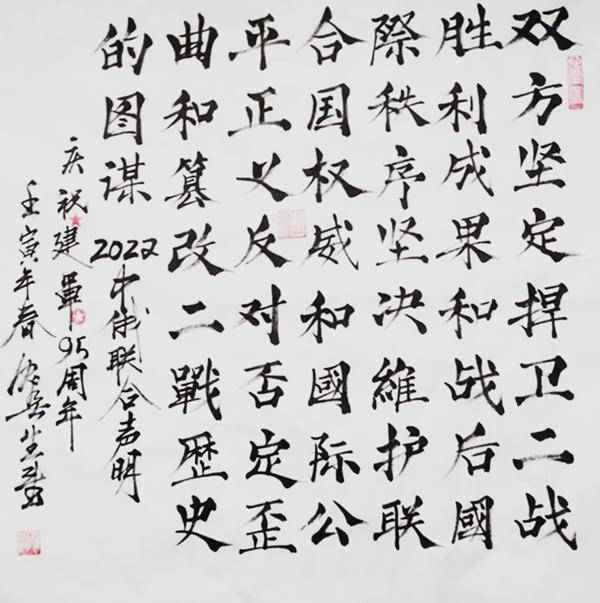 双方坚定捍卫二战
胜利成果和战后國
際秩序坚决維护联
合国权威和國际公
平正义反对否定歪
曲和篡改二戰歴史
的图谋
2022中俄联合声明
庆祝建軍95周年
壬寅年春